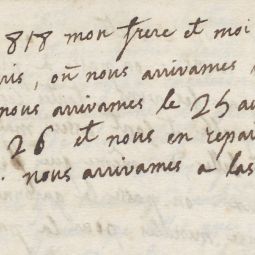 818 mon frere et moi
ris, où nous arrivames
nous arrivames le 25 au
26 et nous en repar
. nous arrivames a las